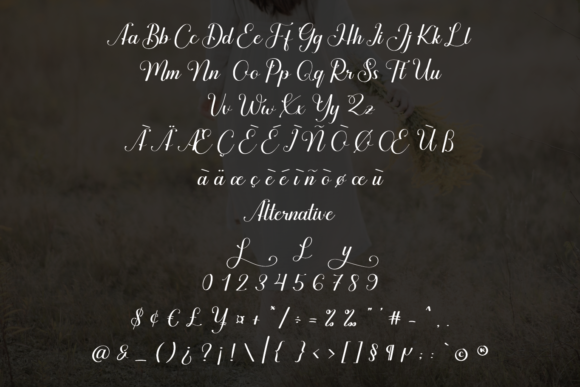 Aa Bb Cc Dd Ee Ff Gg Hh Ii Jj Kk Ll
Mm Nn Oo Pp Qq Rr Ss Tt Uu
Vv Ww Xx Yy Zz
À Ä Æ Ç È É Ì Ñ Ò Ø Œ Ù ß
à ä æ ç è é ì ñ ò ø œ ù
Alternative
L L y
0 1 2 3 4 5 6 7 8 9
$ ¢ € £ ¥ ¤ + * / ÷ = % ‰ " ' # - ^ , .
@ & _ ( ) ¿ ? ¡ ! \ | { } < > [ ] § ¶ µ : ; ` © ®